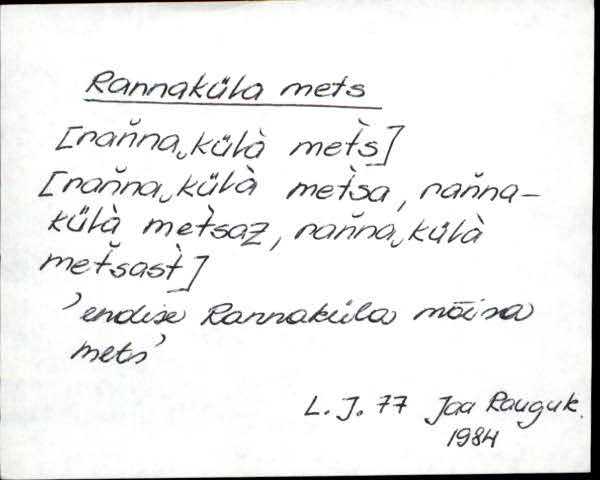 Rannaküla mets
[ran̆na‿külà met̀s]
[ran̆na‿külà met̀sa, ran̆na-
külà met̀saz, ran̆na‿külà
met̆sast̀]
'endise Rannaküla mõisa
mets'
L. J. 77 Jaa Rauguk.
1984